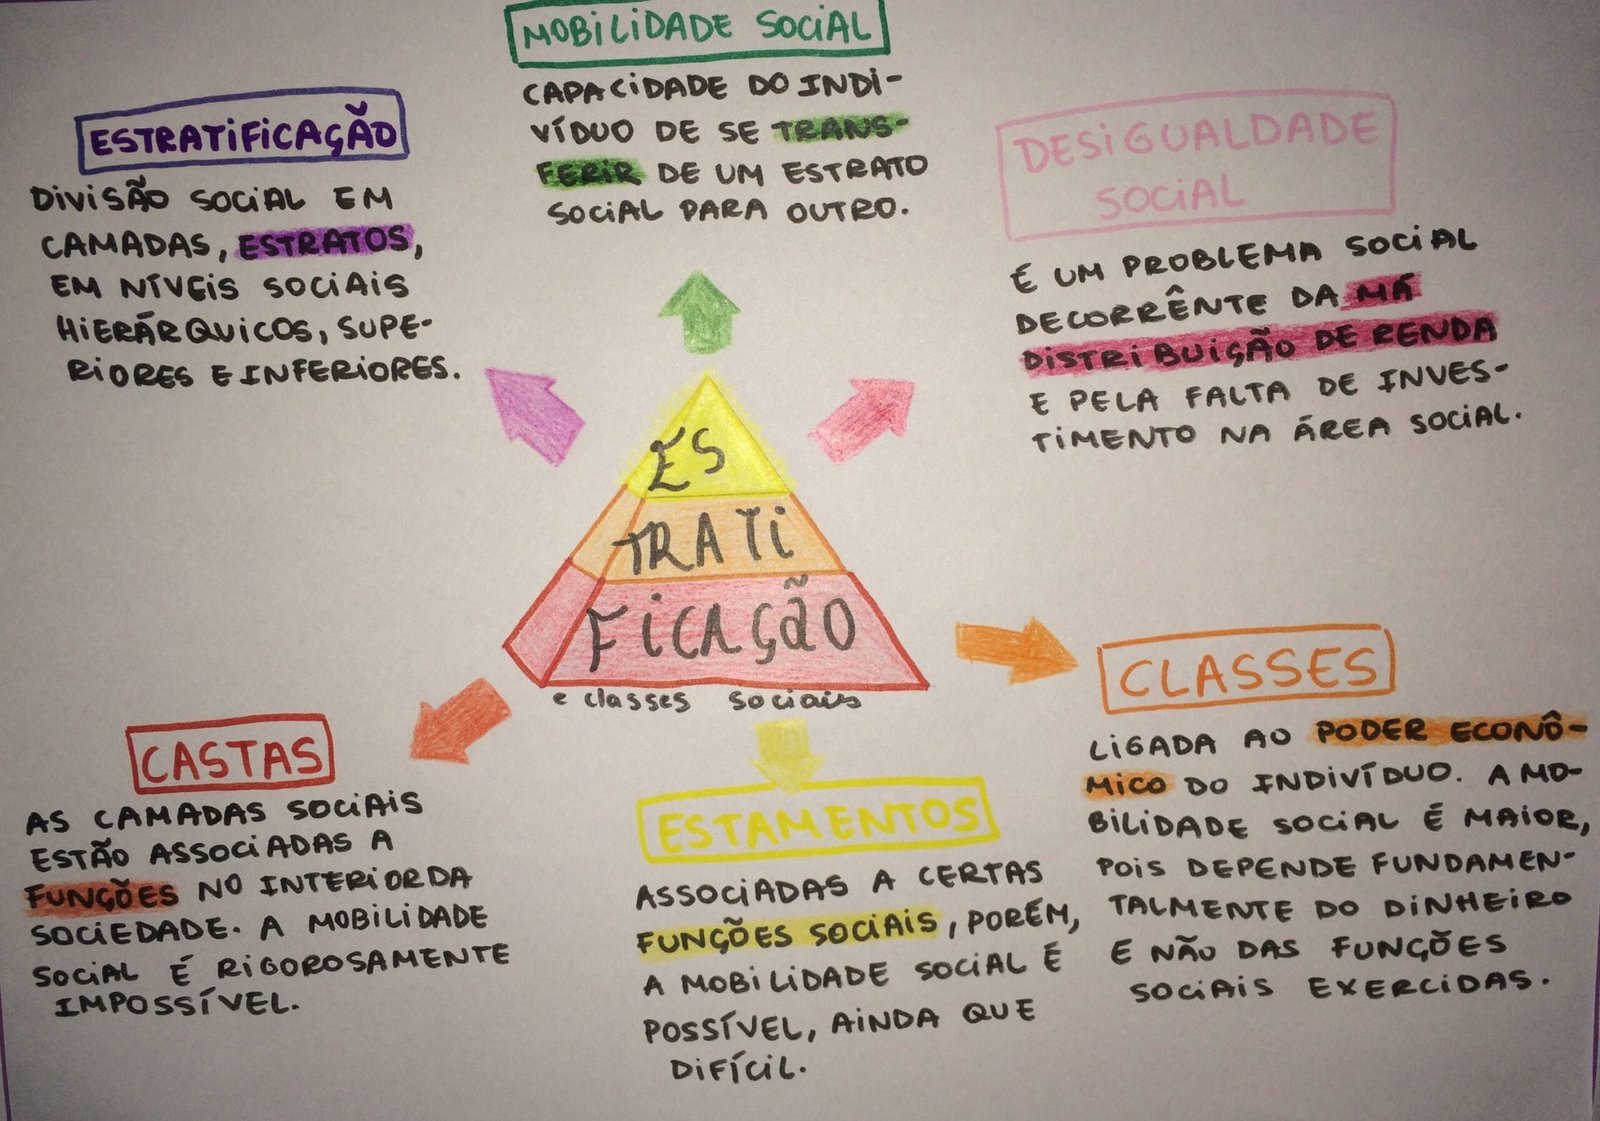 MOBILIDADE SOCIAL
CAPACIDADE DO INDI-
VÍDUO DE SE TRANS-
FERIR DE UM ESTRATO
SOCIAL PARA OUTRO.
ESTRATIFICAÇÃO
DIVISÃO SOCIAL EM
CAMADAS, ESTRATOS,
EM NÍVEIS SOCIAIS
HIERÁRQUICOS, SUPE-
RIORES E INFERIORES.
DESIGUALDADE
SOCIAL
É UM PROBLEMA SOCIAL
DECORRÊNTE DA MÁ
DISTRIBUIÇÃO DE RENDA
E PELA FALTA DE INVES-
TIMENTO NA ÁREA SOCIAL.
ES
TRATI
FICAÇÃO
e classes sociais
CASTAS
AS CAMADAS SOCIAIS
ESTÃO ASSOCIADAS A
FUNÇÕES NO INTERIOR DA
SOCIEDADE. A MOBILIDADE
SOCIAL É RIGOROSAMENTE
IMPOSSÍVEL.
ESTAMENTOS
ASSOCIADAS A CERTAS
FUNÇÕES SOCIAIS, PORÉM,
A MOBILIDADE SOCIAL É
POSSÍVEL, AINDA QUE
DIFÍCIL.
CLASSES
LIGADA AO PODER ECONÔ-
MICO DO INDIVÍDUO. A MO-
BILIDADE SOCIAL É MAIOR,
POIS DEPENDE FUNDAMEN-
TALMENTE DO DINHEIRO
E NÃO DAS FUNÇÕES
SOCIAIS EXERCIDAS.